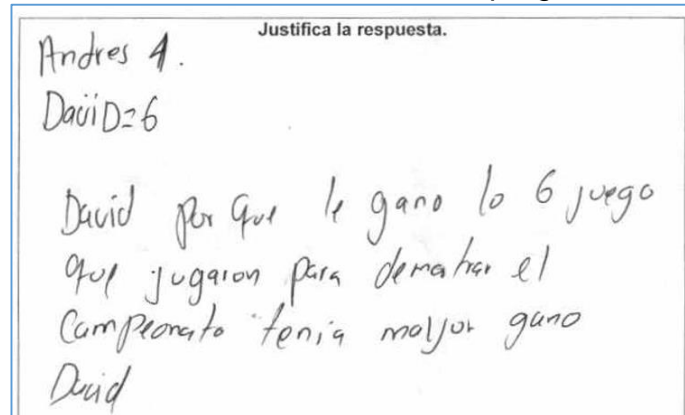 Justifica la respuesta.
Andres 4.
David=6
David por que le gano lo 6 juego
que jugaron para dematrar el
Campeonato tenia malyor gano
David